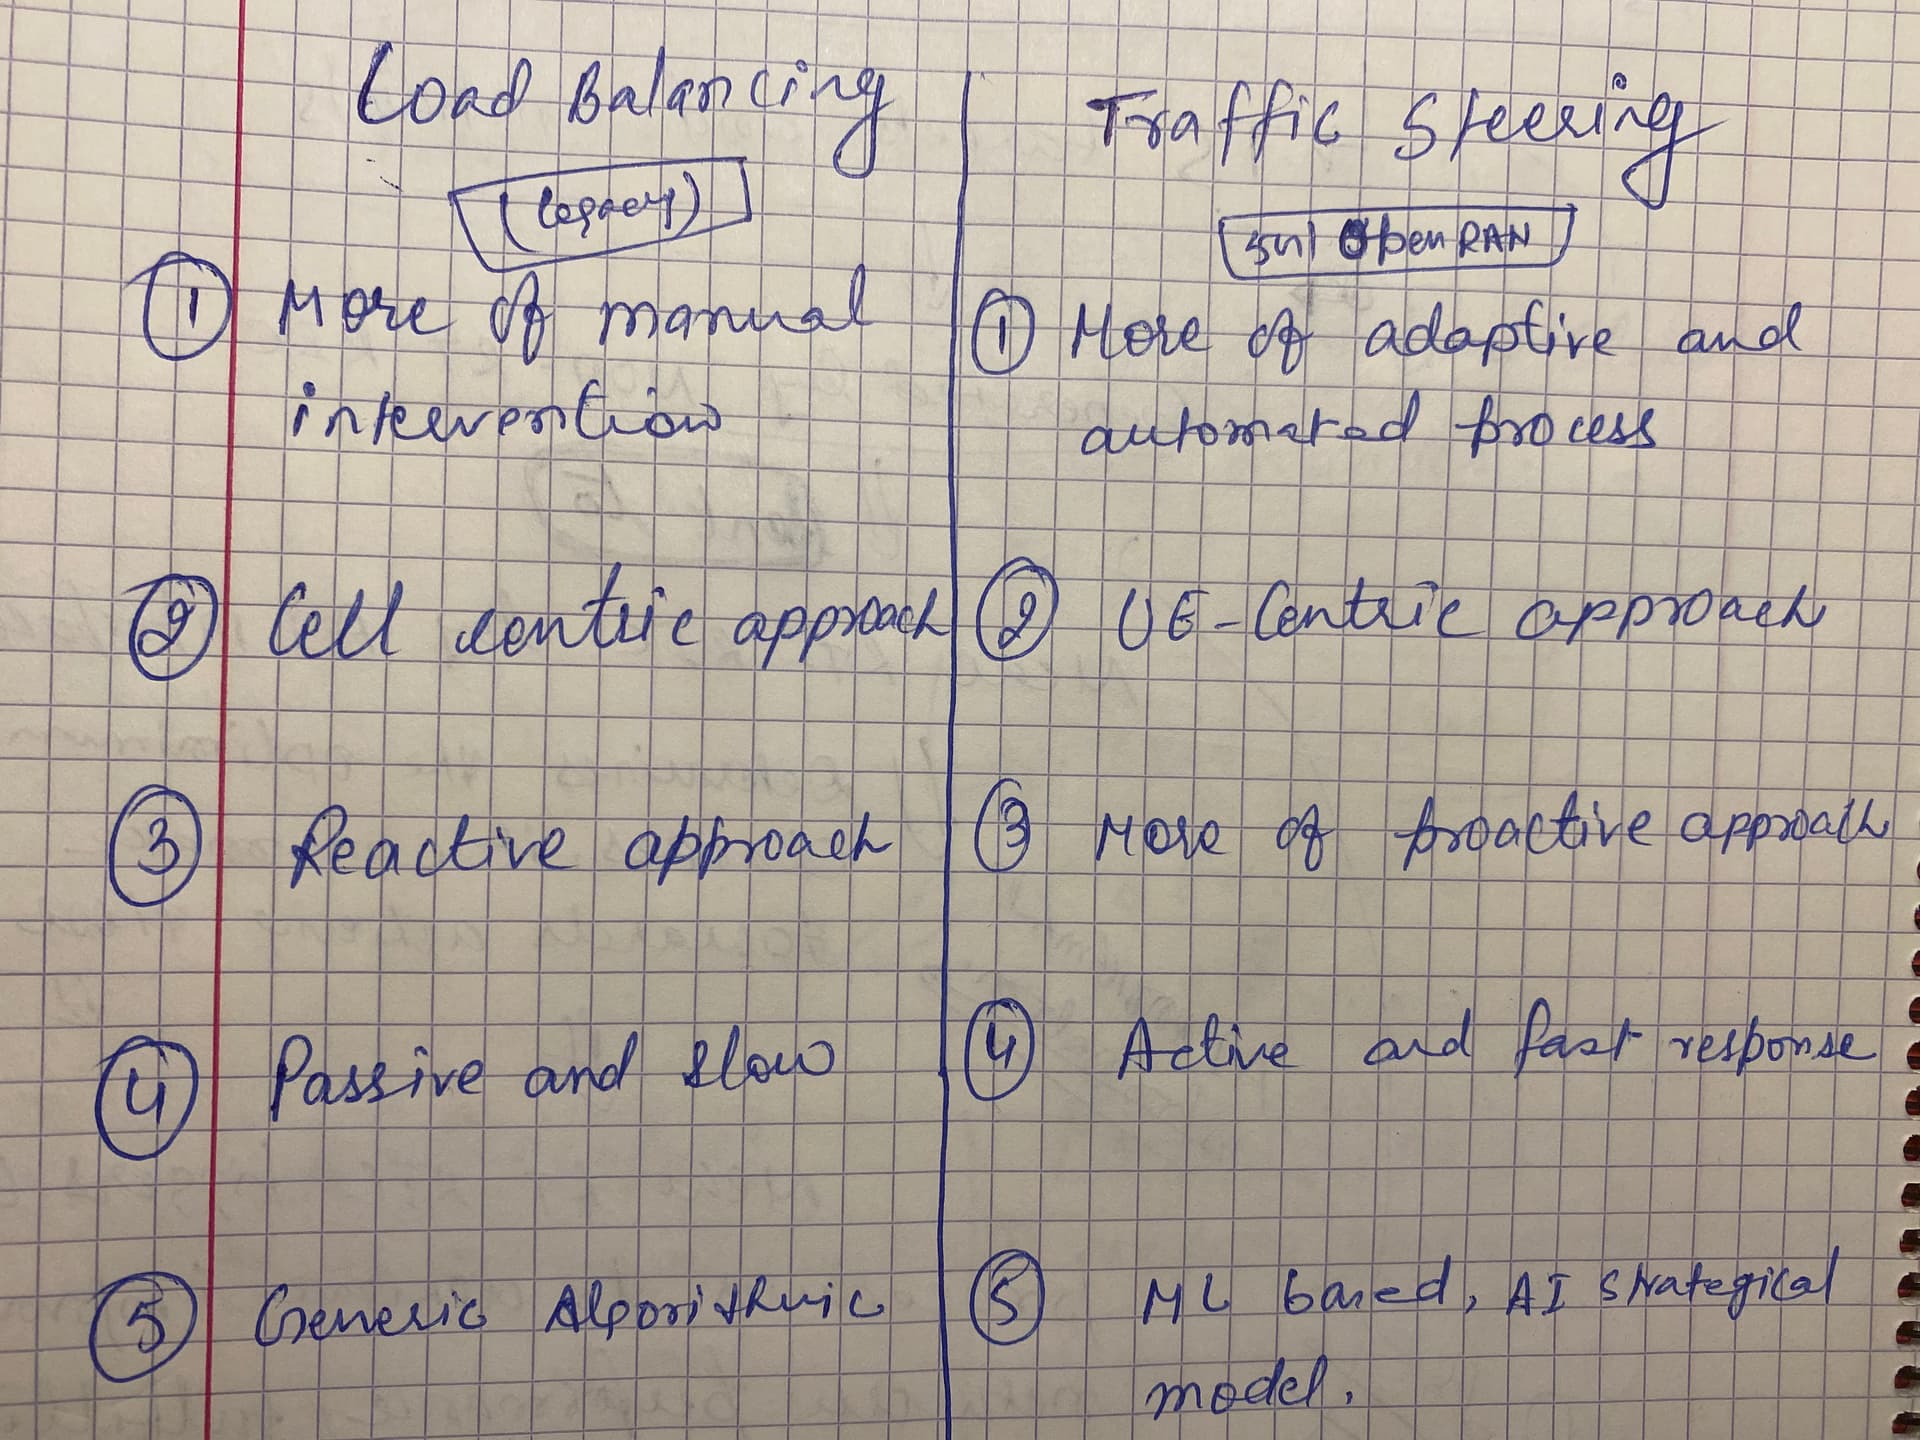 Load Balancing
(Legacy)
① More of manual
intervention
② Cell centric approach
③ Reactive approach
④ Passive and slow
⑤ Generic Algorithmic
Traffic Steering
OpenRAN
① More of adaptive and
automated process
② UE-Centric approach
③ More of proactive approach
④ Active and fast response
⑤ ML based, AI strategical
model.